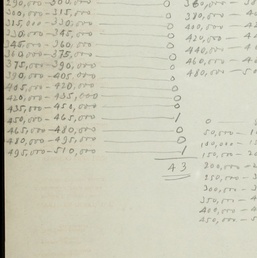 290,000 - 300,000 0
300,000 - 315,000 0
315,000 - 330,000 0
330,000 - 345,000 0
345,000 - 360,000 0
360,000 - 375,000 0
375,000 - 390,000 0
390,000 - 405,000 0
405,000 - 420,000 0
420,000 - 435,000 0
435,000 - 450,000 0
450,000 - 465,000 1
465,000 - 480,000 0
480,000 - 495,000 0
495,000 - 510,000 1
43
360,000 - 38
380,000 - 
400,000 - 
420,000 - 
440,000 - 
460,000 - 
480,000 - 50
0
50,000 - 
100,000 - 
150,000 - 
200,000 - 
250,000 - 
300,000 - 
350,000 - 
400,000 - 
450,000 -